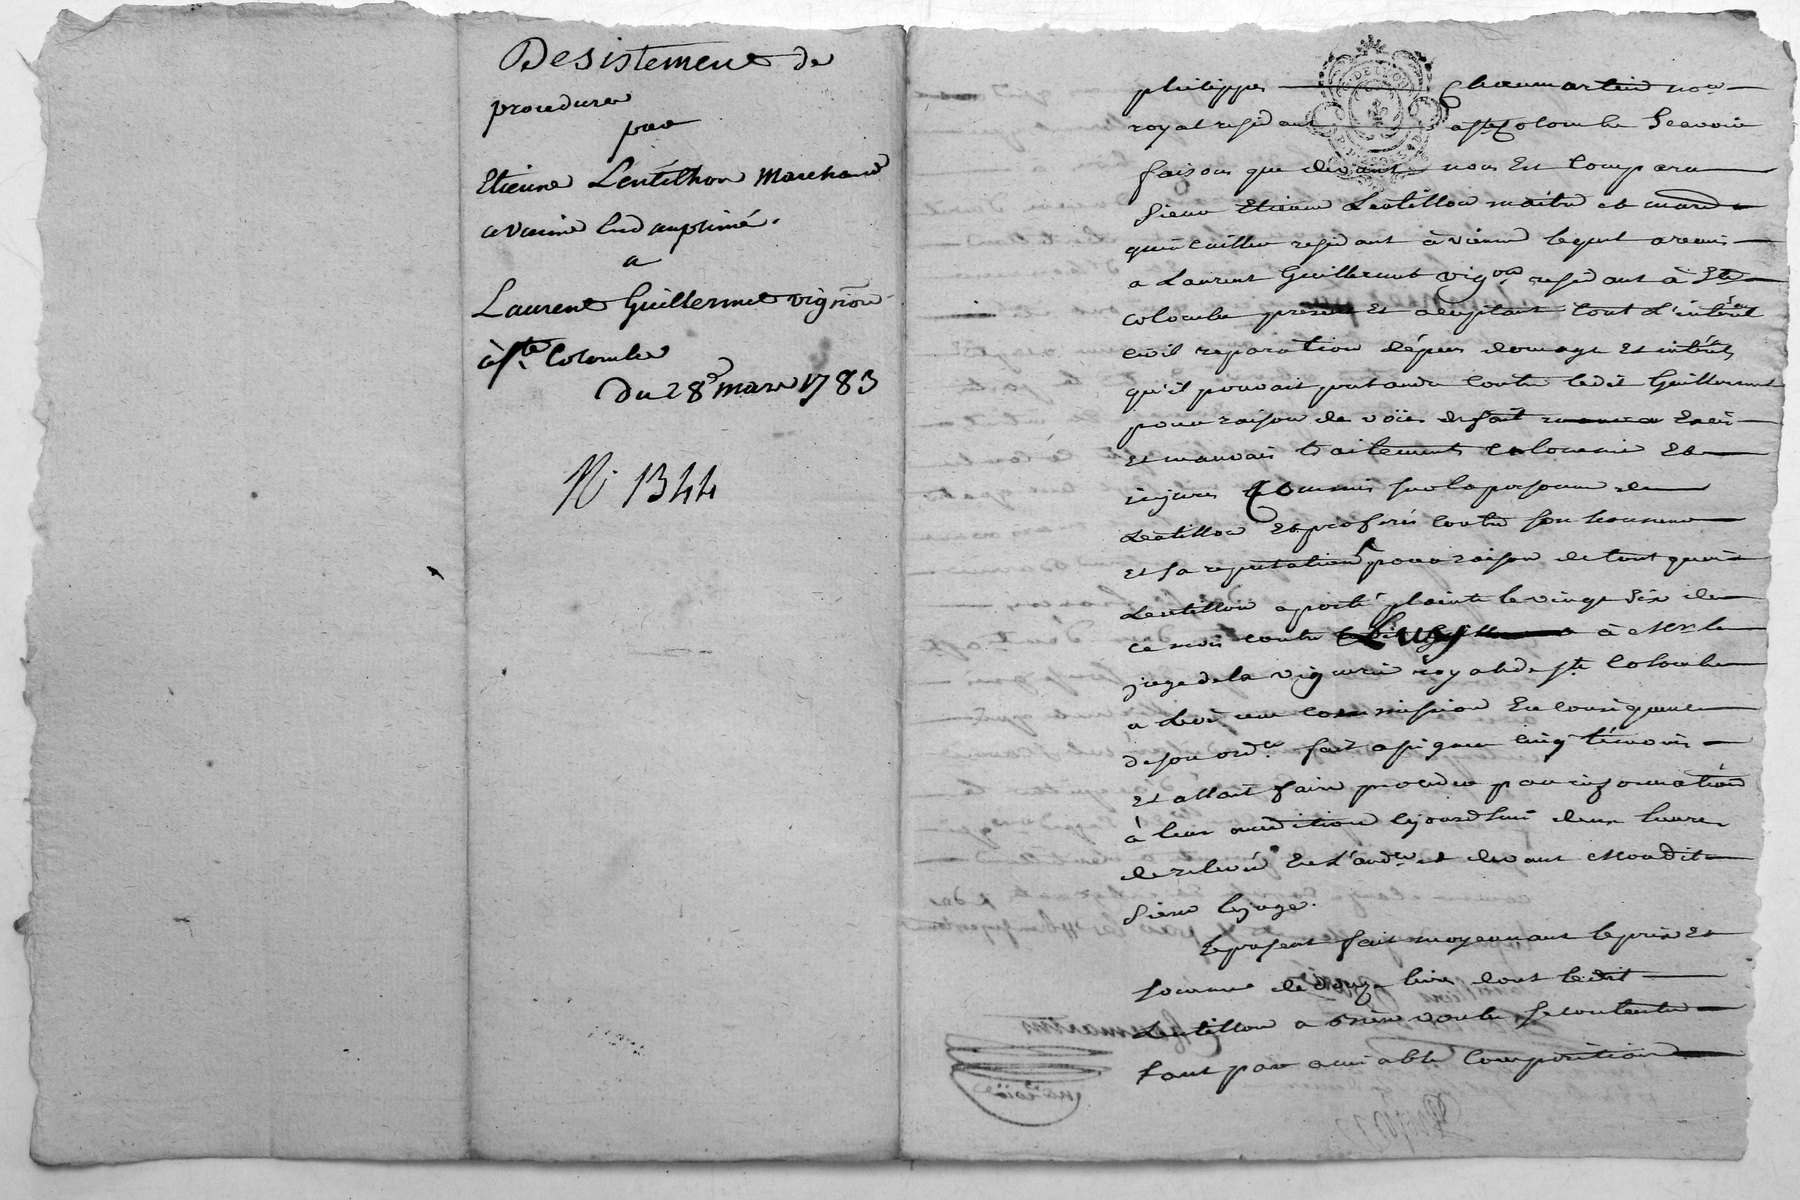 Desistement de
procedure
par
Etienne Lentilhon Marchand
a vienne
a
Laurent Guillermet vigñon
à Ste Colombe
Du 28e mars 1783
N. 1344
philippe Chaumartin nore
royal residant a Ste Colombe Scavoir
faisons que devant nous Est Comparu
Sieur Etienne Lentillon maitre et mard
quincailler residant à vienne lequel a remis
a Laurent Guillermet vigon residant à Ste
Colombe present Et aceptant tout L'intérêt
Civil reparation dépens domage Et intérêts
qu'il pouvait pretandre Contre ledit Guillermet
pour raison de voïes de fait
Et mauvais traitements Calomnie Et
injures Commis sur la personne de
Lentillon Et proferés Contre son honneur
Et sa reputation pour raison de tout quoi
Lentillon a porté plainte le vingt Six de
ce mois contre Luy à Mr le
juge de la viguerie royale de Ste Colombe
commission En consequence
de son ordce fait assigner cinq témoins
Et allait faire proceder par information
à leur audition Cejourdhui deux heures
de relevée En L'audre et devant Mondit
Sieur le juge.
Le present fait moyennant le prix Et
somme de douze livres dont ledit
Lentillon a bien voulu se contenter
tant par amiable Composition